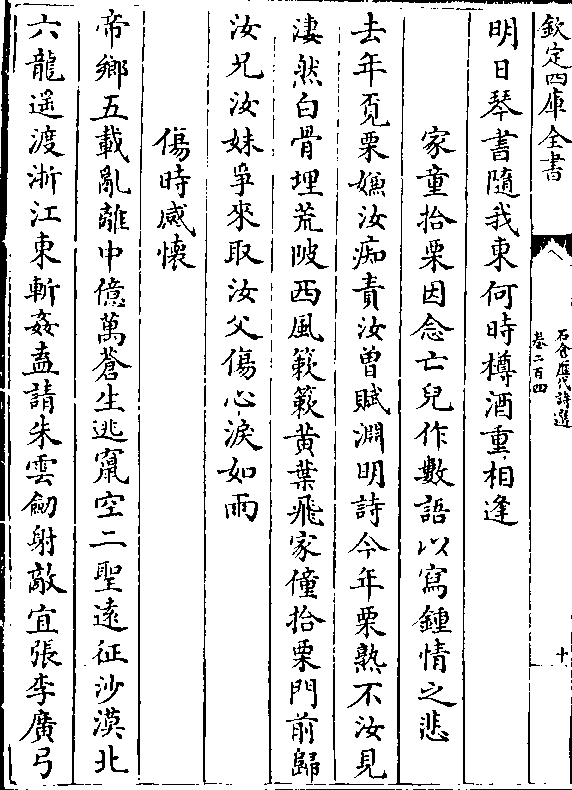 欽定四庫全書
石倉歷代詩選
卷二百四
十
明日琴書隨我東何時樽酒重相逢
家童拾栗因念亡兒作數語以寫鍾情之悲
去年覓栗嫌汝痴責汝曽賦淵明詩今年栗熟不汝見
淒然白骨埋荒陂西風簌簌黃葉飛家僮拾栗門前歸
汝兄汝妹爭來取汝父傷心淚如雨
傷時感懷
帝鄉五載亂離中億萬蒼生逃竄空二聖遠征沙漠北
六龍遥渡浙江東斬姦盍請朱雲劒射敵宜張李廣弓